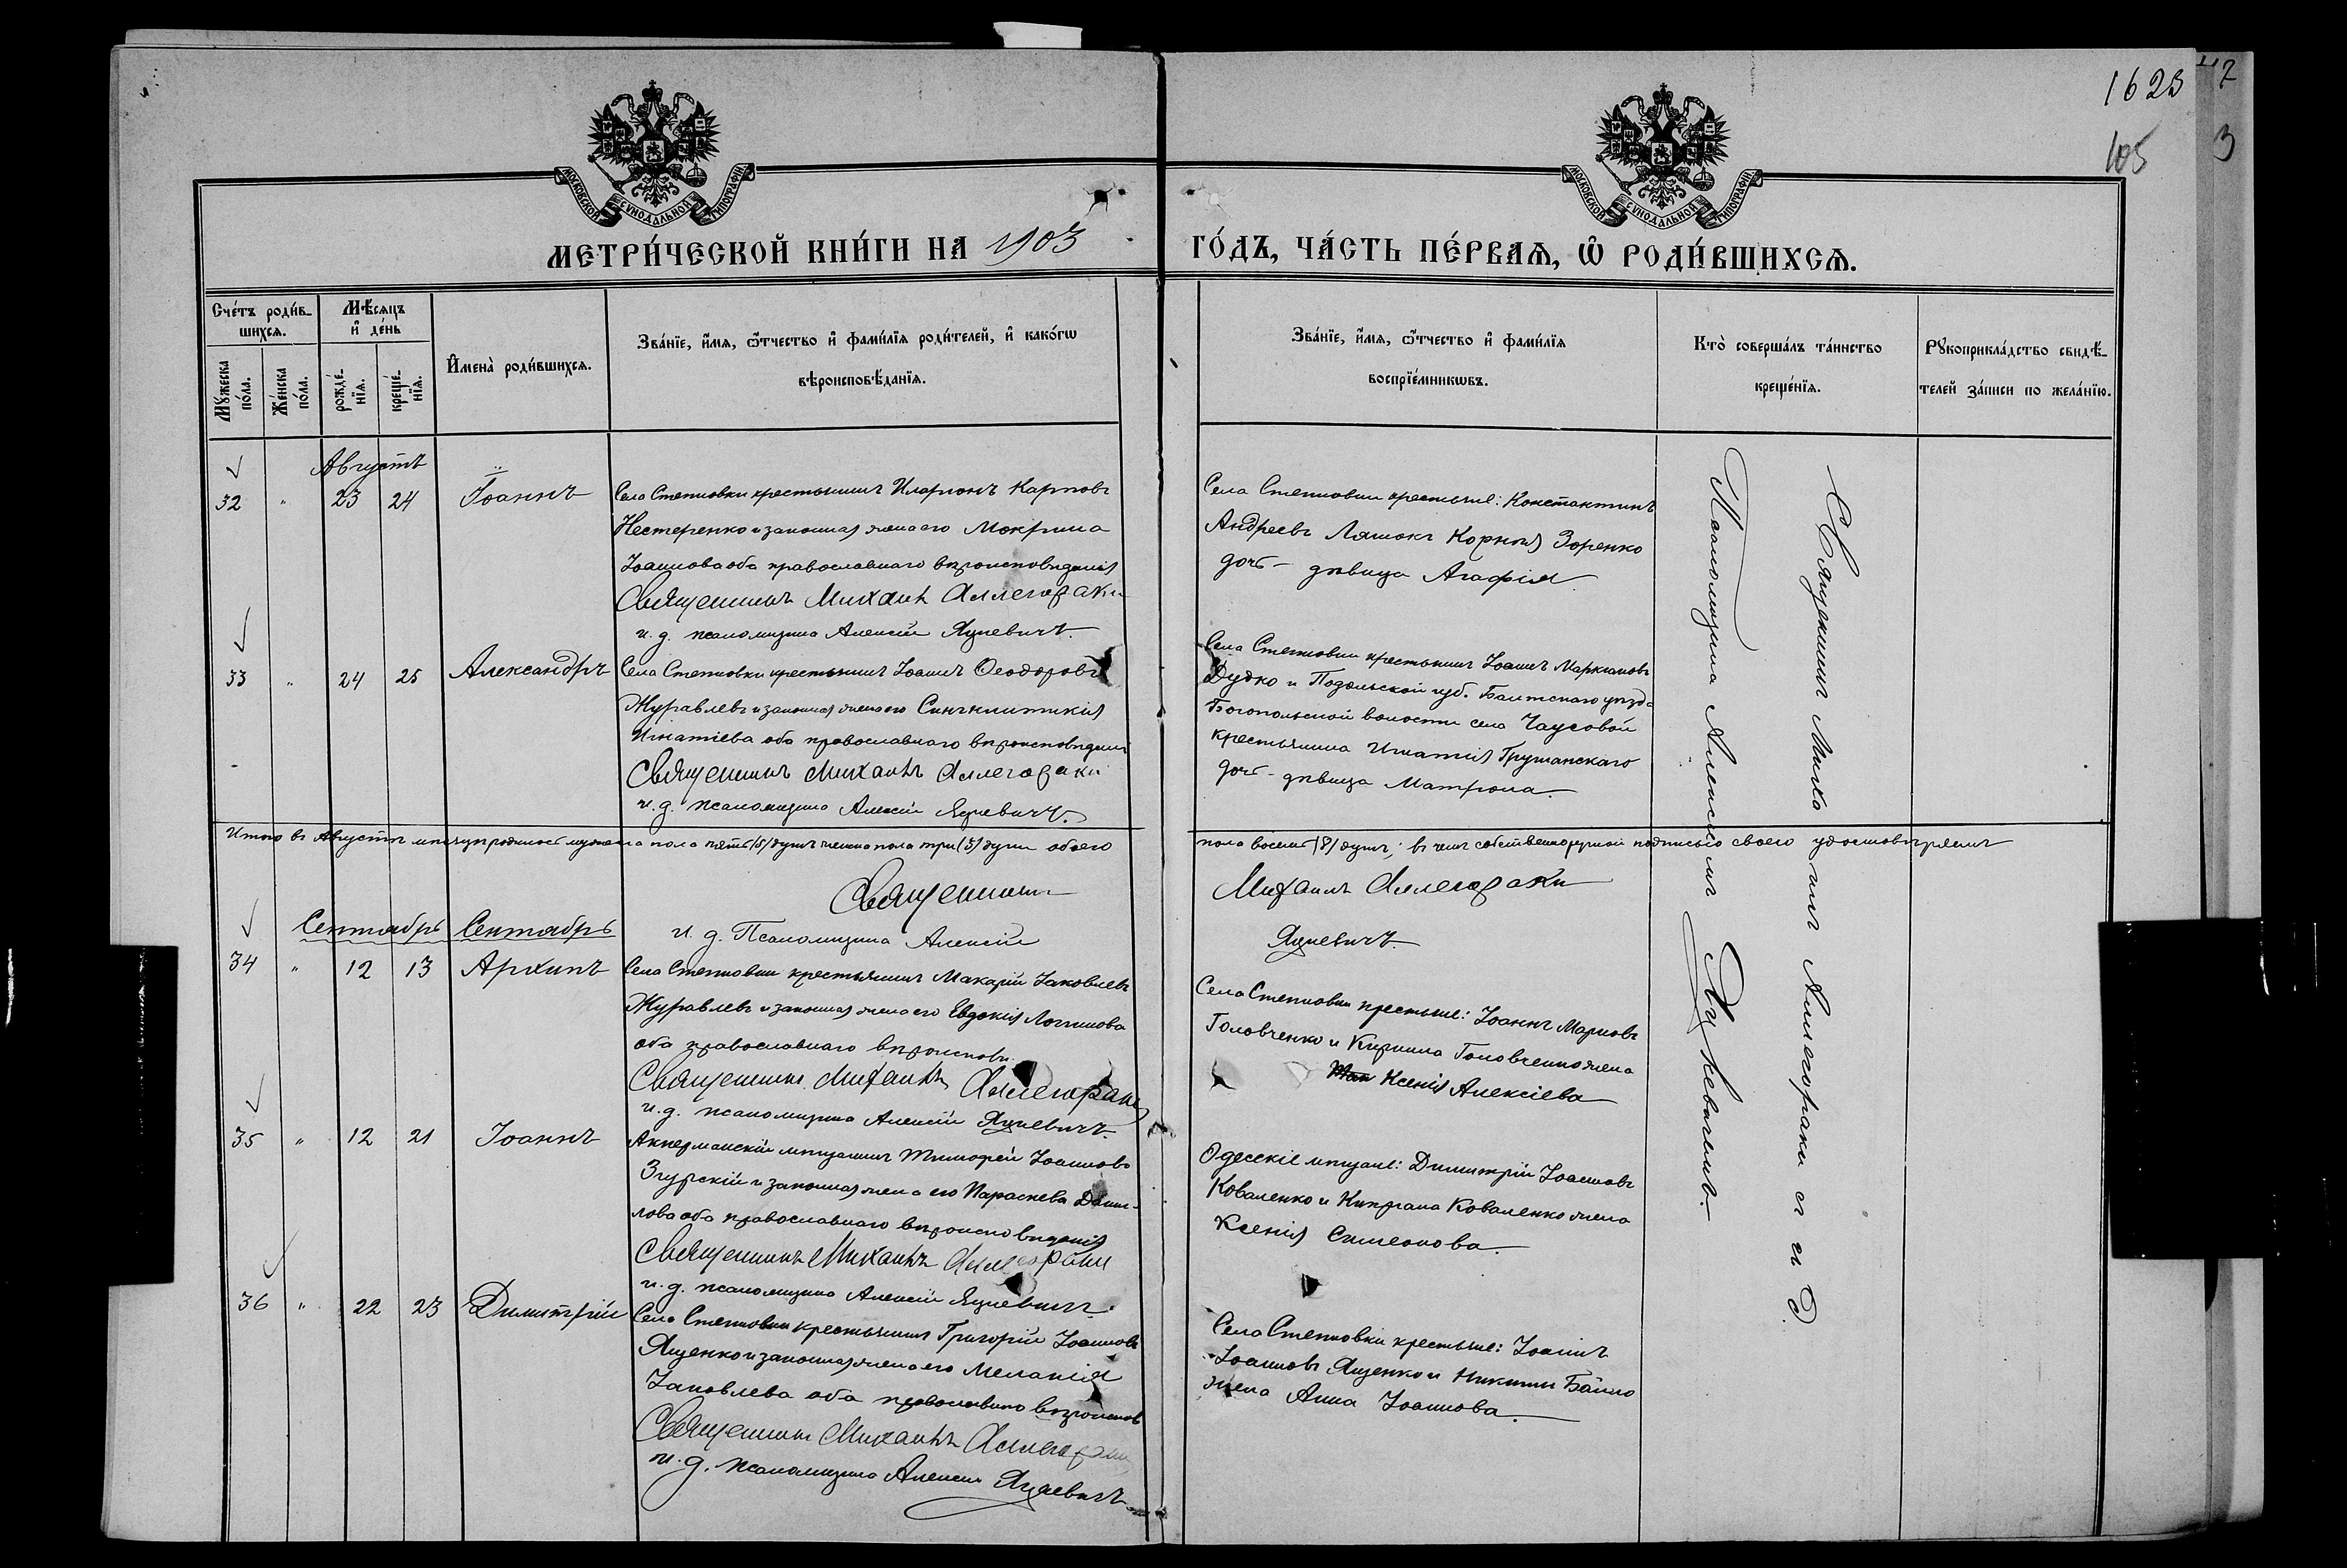 1623
42
105
3
МОСКОВСКОЙ СѴНОДАЛЬНОЙ ТИПОГРАФІИ
МОСКОВСКОЙ СѴНОДАЛЬНОЙ ТИПОГРАФІИ
МЕТРИ́ЧЕСКОЙ КНИ́ГИ НА 1903 ГО́ДЪ, ЧА́СТЬ ПЕ́РВАѦ, Ѡ҆ РОДИ́ВШИХСѦ.
Сче́тъ роди́в-
шихсѧ.
Мѣ́сѧцъ
и҆ де́нь
Мꙋ́жеска
по́ла.
Же́нска
по́ла.
рожде́-
нїѧ.
креще́-
нїѧ.
И҆мена̀ роди́вшихсѧ.
Зва́нїе, и҆́мѧ, ѻ҆́тчество и҆ фами́лїѧ роди́телей, и҆ како́гѡ
вѣроисповѣ́данїѧ.
Зва́нїе, и҆́мѧ, ѻ҆́тчество и҆ фами́лїѧ
воспрїе́мникѡвъ.
Кто̀ соверша́лъ та́инство
креще́нїѧ.
Рꙋкоприкла́дство свидѣ́-
телей за́писи по жела́нїю.
Августъ
32 " 23 24 Іоаннъ
Села Степновки крестьянинъ Иларіонъ Карповъ
Нестеренко и законная жена его Мокрина
Іоаннова оба православнаго вѣроисповѣданія
Священникъ Михаилъ Аллегораки
и. д. псаломщика Алексій Яцкевичъ.
Села Степновки крестьяне: Константинъ
Андреевъ Ляшокъ Корнія Зоренко
дочь - дѣвица Агафія
33 " 24 25 Александръ
Села Степновки крестьянинъ Іоаннъ Ѳеодоровъ
Журавлевъ и законная жена его Синклитикія
Игнатіева оба православнаго вѣроисповѣданія
Священникъ Михаилъ Аллегораки
и. д. псаломщика Алексій Яцкевичъ.
Села Степновки крестьянинъ Іоаннъ Маркіановъ
Дудко и Подольской губ. Балтскаго уѣзда
Богопольской волости села Чаусовой
крестьянина Игнатія Грушанскаго
дочь - дѣвица Матрона.
Итого въ Августѣ мѣсяцѣ родилось мужеска пола пять (5) душъ женска пола три (3) души обоего
пола восемь (8) душъ; въ чемъ собственноручной подписью своею удостовѣряемъ
Священникъ Михаилъ Аллегораки
и. д. Псаломщика Алексій Яцкевичъ.
Сентябрь Сентябрь
34 " 12 13 Архипъ
Села Степновки крестьянинъ Макарій Іаковлевъ
Журавлевъ и законная жена его Евдокія Логгинова
оба православнаго вѣроисповѣ.
Священникъ Михаилъ Аллегораки
и. д. псаломщика Алексій Яцкевичъ.
Села Степновки крестьяне: Іоаннъ Марковъ
Головченко и Кирилла Головченко жена
Ксенія Алексіева
35 " 12 21 Іоаннъ
Аккерманскій мѣщанинъ Тимофей Іоанновъ
Згурскій и законная жена его Параскева Дани-
лова оба православнаго вѣроисповѣданія
Священникъ Михаилъ Аллегораки
и. д. псаломщика Алексій Яцкевичъ.
Одесскіе мѣщане: Димитрій Іоанновъ
Коваленко и Киприана Коваленко жена
Ксенія Симеонова.
36 " 22 23 Димитрій
Села Степновки крестьянинъ Григорій Іоанновъ
Ященко и законная жена его Меланія
Іаковлева оба православнаго вѣроисповѣ
Священникъ Михаилъ Аллегораки
и. д. псаломщика Алексій Яцкевичъ
Села Степновки крестьяне: Іоаннъ
Іоанновъ Ященко и Никиты Бойко
жена Анна Іоаннова.
Священникъ Михаилъ Аллегораки съ и. д.
Псаломщика Алексіемъ Яцкевичемъ.